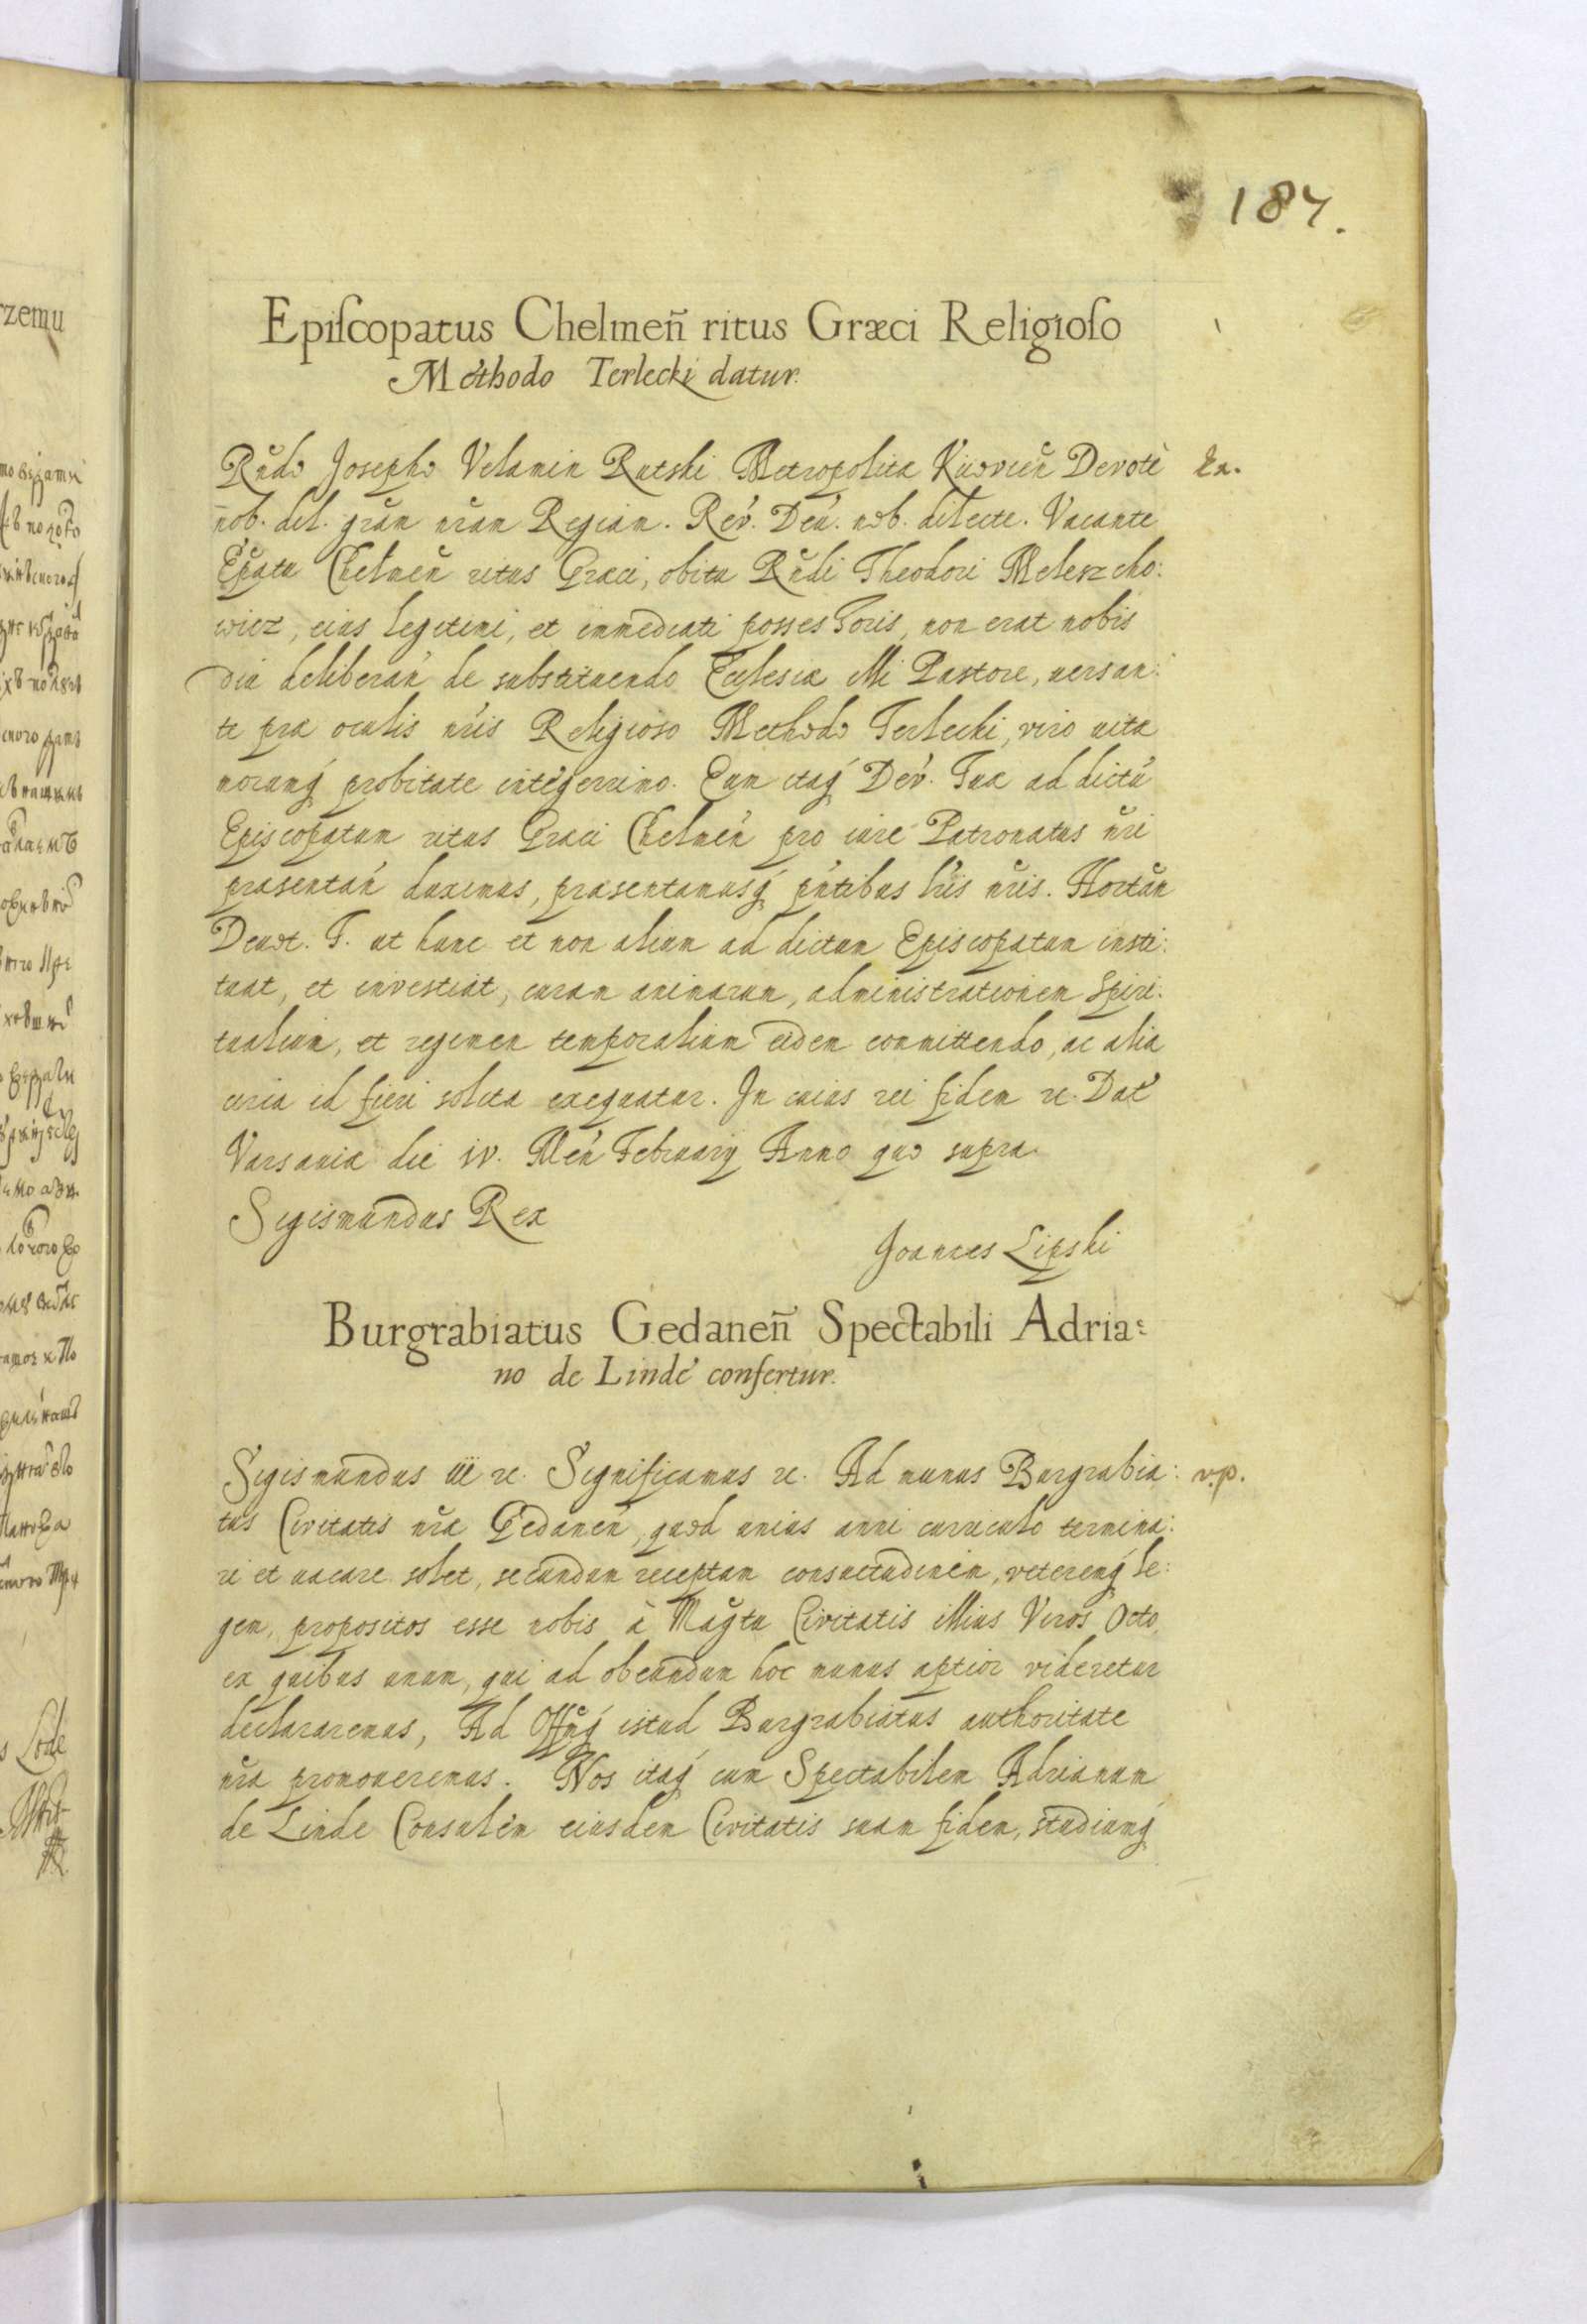 187.
Epiſcopatus Chelmen̄ ritus Græci Religioſo
Methodo Terlecki datur.
Rn̄do Josepho Velamin Rutski Metropolitæ Kiiovien̄ Devote Ex.
nob. dil. grãm nr̃am Regiam. Rev. Deu. nob. dilecte. Vacante
Ep̃atu Chelmen̄ ritus Græci, obitu Rn̄di Theodori Meleszcho:
wicz, eius legitimi, et immediati possesſoris, non erat nobis
diu deliberan̄ de substituendo Ecclesiæ illi Pastore, uersan:
te præ oculis nr̃is Religioso Methodo Terlecki, viro uitæ
morumq́ probitate integerrimo. Eum itaq́ Dev. Tuæ ad dictũ
Episcopatum ritus Græci Chelmen̄ pro iure Patronatus nr̃i
præsentan̄ duximus, præsentamusq́ pn̄tibus lr̃is nr̃is. Hortan̄
Deuot. T. ut hunc et non alium ad dictum Episcopatum insti:
tuat, et investiat, curam animarum, administrationem Spiri:
tualium, et regimen temporalium eidem committendo, ac alia
circa id fieri solita exequatur. In cuius rei fidem ꝛc. Dat̃
Varsauiæ die IV. Men̄ February Anno quo supra.
Sigismundus Rex
Joannes Lipski
Burgrabiatus Gedanen̄ Spectabili Adria:
no de Linde confertur.
Sigismundus iii ꝛc. Significamus ꝛc. Ad munus Burgrabia: v.p.
tus Civitatis nr̃æ Gedanen̄, quod unius anni curriculo termina:
ri et uacare solet, secundum receptam consuetudinem, veteremq́ le:
gem, propositos esse nobis à Mag̃tu Civitatis illius Viros Octo,
ex quibus unum, qui ad obeundum hoc munus aptior videretur
declararemus, Ad Off̃mq́ istud Burgrabiatus authoritate
nr̃a promoueremus. Nos itaq́ cum Spectabilem Adrianum
de Linde Consulem eiusdem Civitatis suam fidem, studiumq́